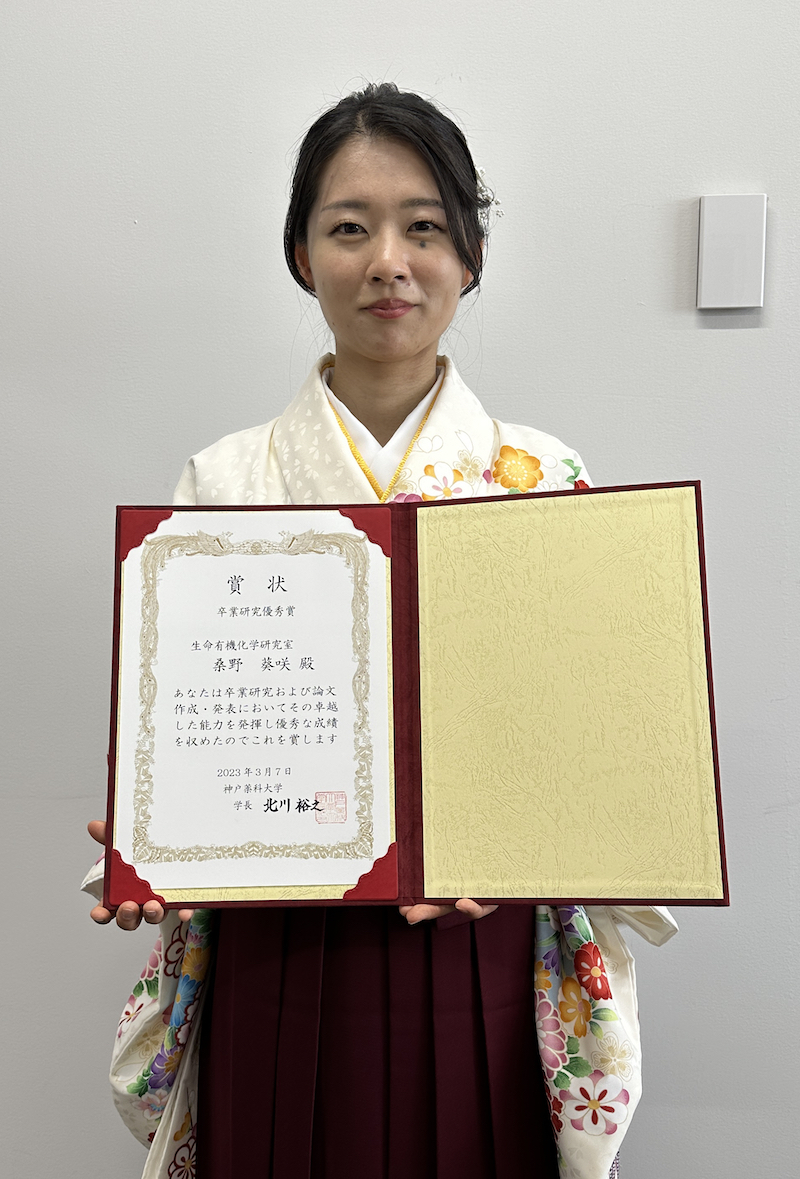 賞 状
卒業研究優秀賞
生命有機化学研究室
桑野 葵咲 殿
あなたは卒業研究および論文
作成・発表においてその卓越
した能力を発揮し優秀な成績
を収めたのでこれを賞します
2023年3月7日
神戸薬科大学
学長 北川 裕之